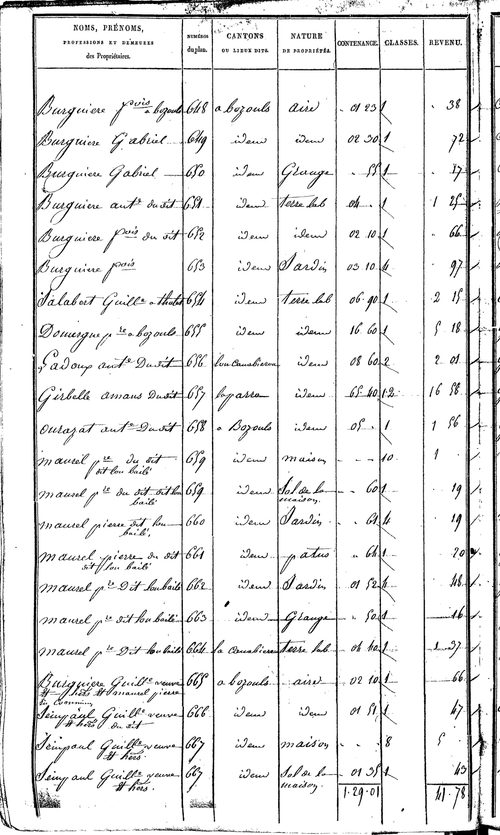 NOMS, PRÉNOMS, PROFESSIONS ET DEMEURES des Propriétaires. | NUMÉROS du plan. | CANTONS OU LIEUX DITS. | NATURE DE PROPRIÉTÉS. | CONTENANCE. | CLASSES. | REVENU.
Burguiere fçois a bozouls 648 a bozouls aire 01 23 1 38
Burguiere Gabriel 649 idem idem 02 30 1 72
Burguiere Gabriel 650 idem Grange 55 1 17
Burguiere ante du dit 651 idem terre lab 04 1 1 25
Burguiere fçois du dit 652 idem idem 02 10 1 66
Burguiere fçois 653 idem Jardin 03 10 4 97
Salabert Guille 654 idem terre lab 06 90 1 2 15
Domergue pre a bozouls 655 idem idem 16 60 1 5 18
Gadoux ante Du dit 656 idem 08 60 2 2 01
Girbelle amans du dit 657 laparra idem 65 40 1.2 16 58
ourazat ante Du dit 658 a Bozouls idem 05 1 1 56
maurel pre du dit 659 idem maison 10 1
dit lou baile
maurel pre du dit dit lou 659 idem Sol de la 60 1 19
baile maison
maurel pierre dit lou 660 idem Jardin 61 4 19
baile
maurel pierre du dit 661 idem patus 66 1 20
dit lou baile
maurel pre Dit lou baile 662 idem Jardin 01 52 4 48
maurel pre dit lou baile 663 idem Grange 50 1 16
maurel pre Dit lou baile 664 la Canabiere terre lab 04 40 1 1 37
Burguiere Guille veuve 665 a bozouls aire 02 10 1 66
hers maurel pierre
Seinpaul Guille veuve 666 idem idem 01 51 1 47
hers du dit
Seinpaul Guille veuve 667 idem maison 8 5
hers
Seinpaul Guille veuve 667 idem Sol de la 01 35 1 43
hers. maison.
1.29.01 41.78